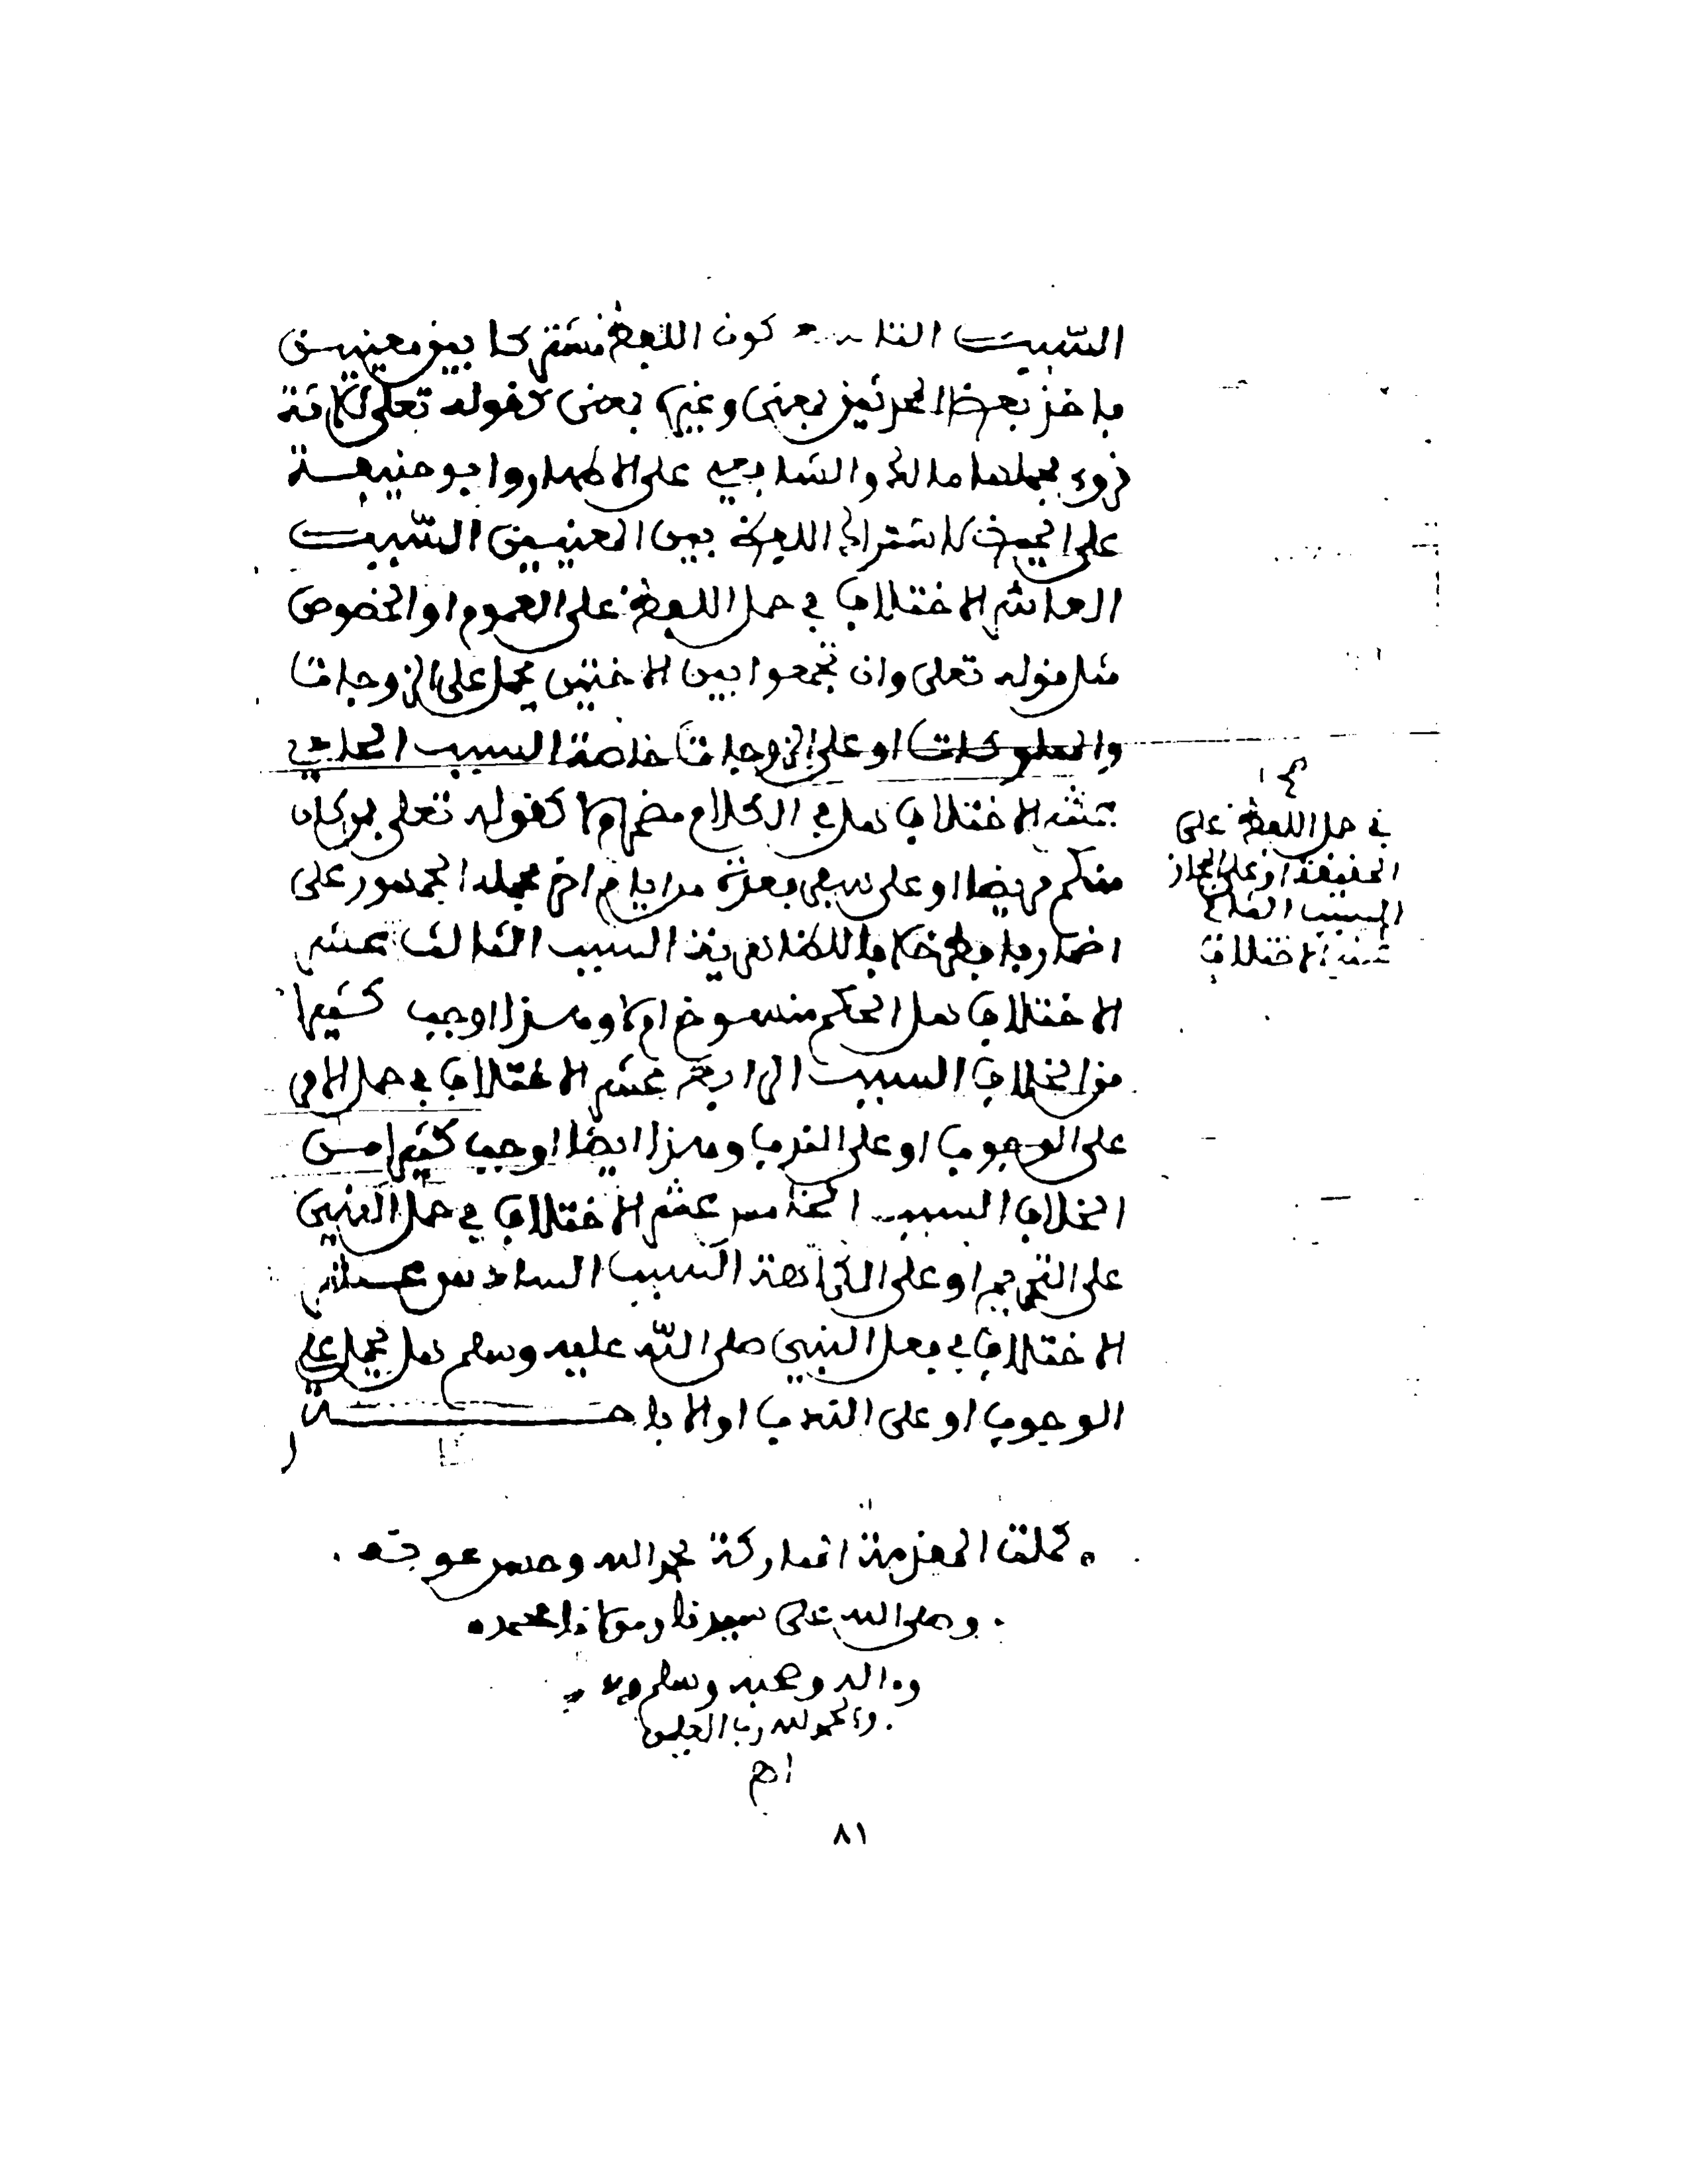 السبب التاسع كون اللفظ مشتركا بين معنيين
فاخذ بعض المحدثين بمعنى وغيره بمعنى كقوله تعلى ثلاثة
قروء فحملها مالك والشافعي على الاطهار وابو حنيفة
على الحيض لاشتراك اللفظ بين المعنيين السبب
العاشر الاختلاف في حمل اللفظ على العموم او الخصوص
مثل قوله تعلى وان تجمعوا بين الاختين يحمل على الزوجات
والمملوكات او على الزوجات خاصة السبب الحادي
عشر الاختلاف هل في الكلام مضمر ام لا كقوله تعلى فمن كان
منكم مريضا او على سفر فعدة من ايام اخر فحمله الجمهور على
اضمار فافطر خلافا للظاهرية السبب الثالث عشر
الاختلاف هل الحكم منسوخ ام لا وهذا اوجب كثيرا
من الخلاف السبب الرابع عشر الاختلاف في حمل الامر
على الوجوب او على الندب وهذا ايضا اوجب كثيرا من
الخلاف السبب الخامس عشر الاختلاف في حمل النهي
على التحريم او على الكراهة السبب السادس عشر
الاختلاف في فعل النبي صلى الله عليه وسلم هل يحمل على
الوجوب او على الندب او الاباحة
في حمل اللفظ على
الحقيقة او على المجاز
السبب الثاني
عشر الاختلاف
كملت المقدمة المباركة بحمد الله وحسن عونه
وصلى الله على سيدنا ومولانا محمد
وءاله وصحبه وسلم
والحمد لله رب العلمين
اهـ
٨١